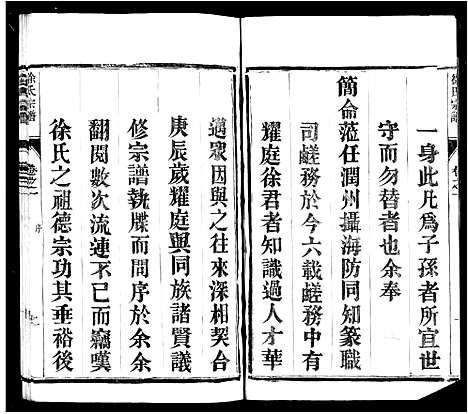 徐氏宗譜
一身此凡為子孫者所宜世
守而勿替者也余奉
簡侖蒞任潤州攝海防同知篆職
司鹺務於今六載鹺務中有
耀庭徐君者知識過人才華
邁眾因與之往來深相契合
庚辰歲耀庭與同族諸賢議
修宗譜執牒而問序於余余
翻閱數次流連不已而竊嘆
徐氏之祖德宗功其垂裕後
徐氏宗譜
序